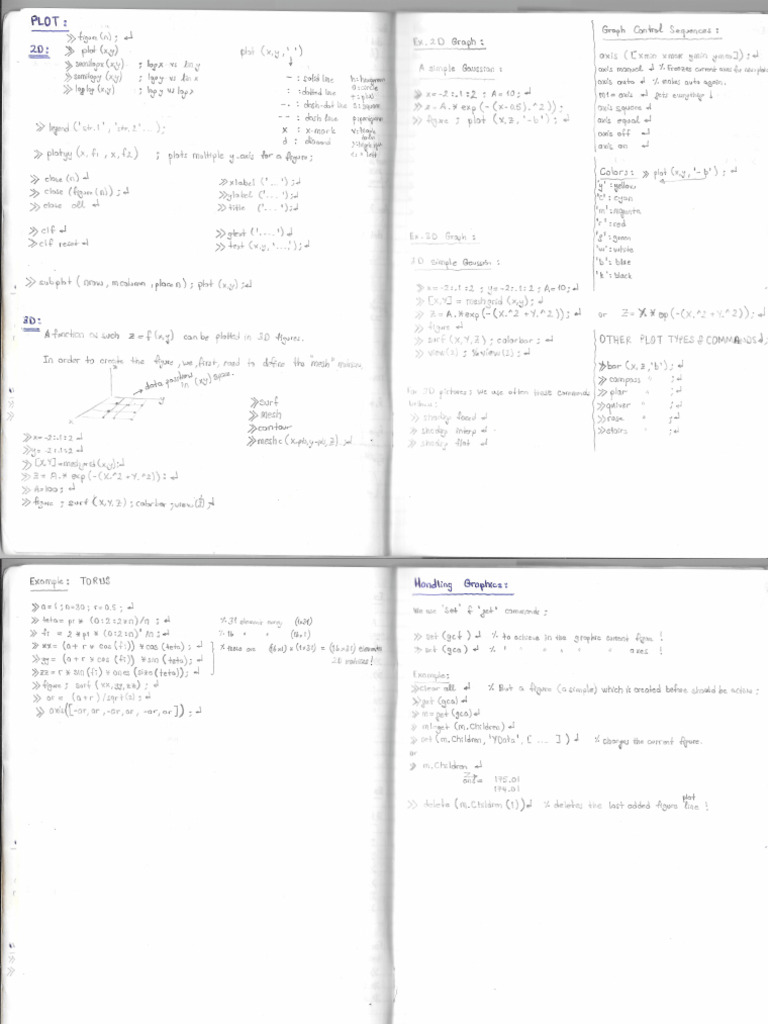 PLOT:
>> figure(n); ↲
2D: >> plot(x,y) plot(x,y,'.')
>> semilogx(x,y) ; logx vs lin y
>> semilogy(x,y) ; logy vs lin x
>> loglog(x,y) ; log y vs log x
- : solid line
: : dotted line
-. : dash-dot line
-- : dash line
x : x-mark
d : diamond
>> legend('str.1', 'str.2'...);
>> plotyy(x, f1, x, f2) ; plots multiple y-axis for a figure;
>> close(n) ↲ >> xlabel('...');↲
>> close(figure(n)); ↲ >> ylabel('...');↲
>> close all ↲ >> title('...');↲
>> clf ↲ >> gtext('....')↲
>> clf reset ↲ >> text(x,y,'....');↲
>> subplot(nrow, mcolumn, placen); plot(x,y);↲
3D:
A function is such z=f(x,y) can be plotted in 3D figures.
In order to create the figure, we, first, need to define the "mesh"
data position in (x,y) space.
y
x
>> surf
>> mesh
>> contour
>> x=-2:.1:2
>> y=-2:.1:2
>> [X,Y]=meshgrid(x,y);↲
>> Z=A.*exp(-(X.^2+Y.^2)); ↲
>> A=100; ↲
>> figure ; surf(X,Y,Z); colorbar; view(3);↲
Ex. 2D Graph:
A simple Gaussian:
>> x=-2:.1:2 ; A=10; ↲
>> z=A.*exp(-(x-0.5).^2);
>> figure ; plot(x,z,'-b'); ↲
Ex. 3D Graph:
3D Simple Gaussian:
>> x=-2:.1:2 ; y=-2:.1:2 ; A=10;↲
>> [X,Y]=meshgrid(x,y); ↲
>> Z=A.*exp(-(X.^2+Y.^2)); ↲ or Z=X.*exp(-(X.^2+Y.^2)); ↲
>> figure ↲
>> surf(X,Y,Z); colorbar; ↲
>> view(2) ; %view(3); ↲
For 3D pictures: we use often these commands
below:
>> shading faceted ↲
>> shading interp ↲
>> shading flat ↲
Graph Control Sequences:
axis([xmin xmax ymin ymax]);↲
axis manual ↲ % Freezes current axes for
axis auto ↲ % makes auto again.
axis ↲ gets everything
axis square ↲
axis equal ↲
axis off ↲
axis on ↲
Colors: >> plot(x,y,'-b'); ↲
'y': yellow
'c': cyan
'm': magenta
'r': red
'g': green
'w': white
'b': blue
'k': black
OTHER PLOT TYPES & COMMANDS:
>> bar(x,z,'b'); ↲
>> compass " ;↲
>> polar " ;↲
>> quiver " ;↲
>> rose " ;↲
>> stairs " ;↲
Example: TORUS
>> a=1; n=30; r=0.5; ↲
>> teta= pi * (0:2:2*n)/n ; ↲ % 31 element array (1x31)
>> fi = 2*pi*(0:2:n)'/n; ↲
>> xx=(a+r*cos(fi))*cos(teta); ↲
>> yy=(a+r*cos(fi))*sin(teta); ↲ % these are (16x1)*(1x31)=(16x31) elements
>> zz=r*sin(fi)*ones(size(teta)); ↲ 2D matrices!
>> figure; surf(xx,yy,zz) ; ↲
>> ar=(a+r)/sqrt(2); ↲
>> axis([-ar,ar,-ar,ar,-ar,ar]); ↲
Handling Graphics:
We use 'set' & 'get' commands;
>> set(gcf) ↲ % to achieve in the graphic current figure !
>> set(gca) ↲ % " " " " " axes !
Example:
>> clear all ↲ % But a figure (a simple) which is created before should be active;
>> get(gca)↲
>> m=get(gca)↲
>> m1=get(m.Children)↲
>> set(m.Children, 'YData', [ .... ]) ↲ % changes the current figure.
or
>> m.Children ↲
175.01
174.01
>> delete(m.Children(1))↲ % deletes the last added figure plot line !